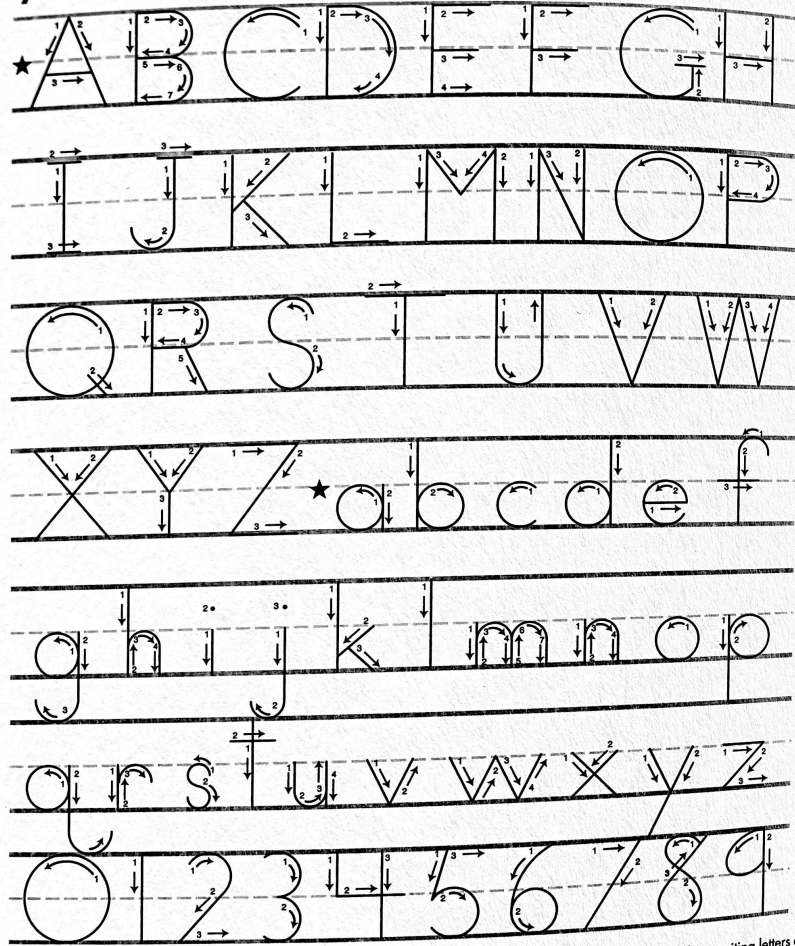 A B C D E F G H
I J K L M N O P
Q R S T U V W
X Y Z a b c d e f
g h i j k l m n o p
q r s t u v w x y z
0 1 2 3 4 5 6 7 8 9
letters